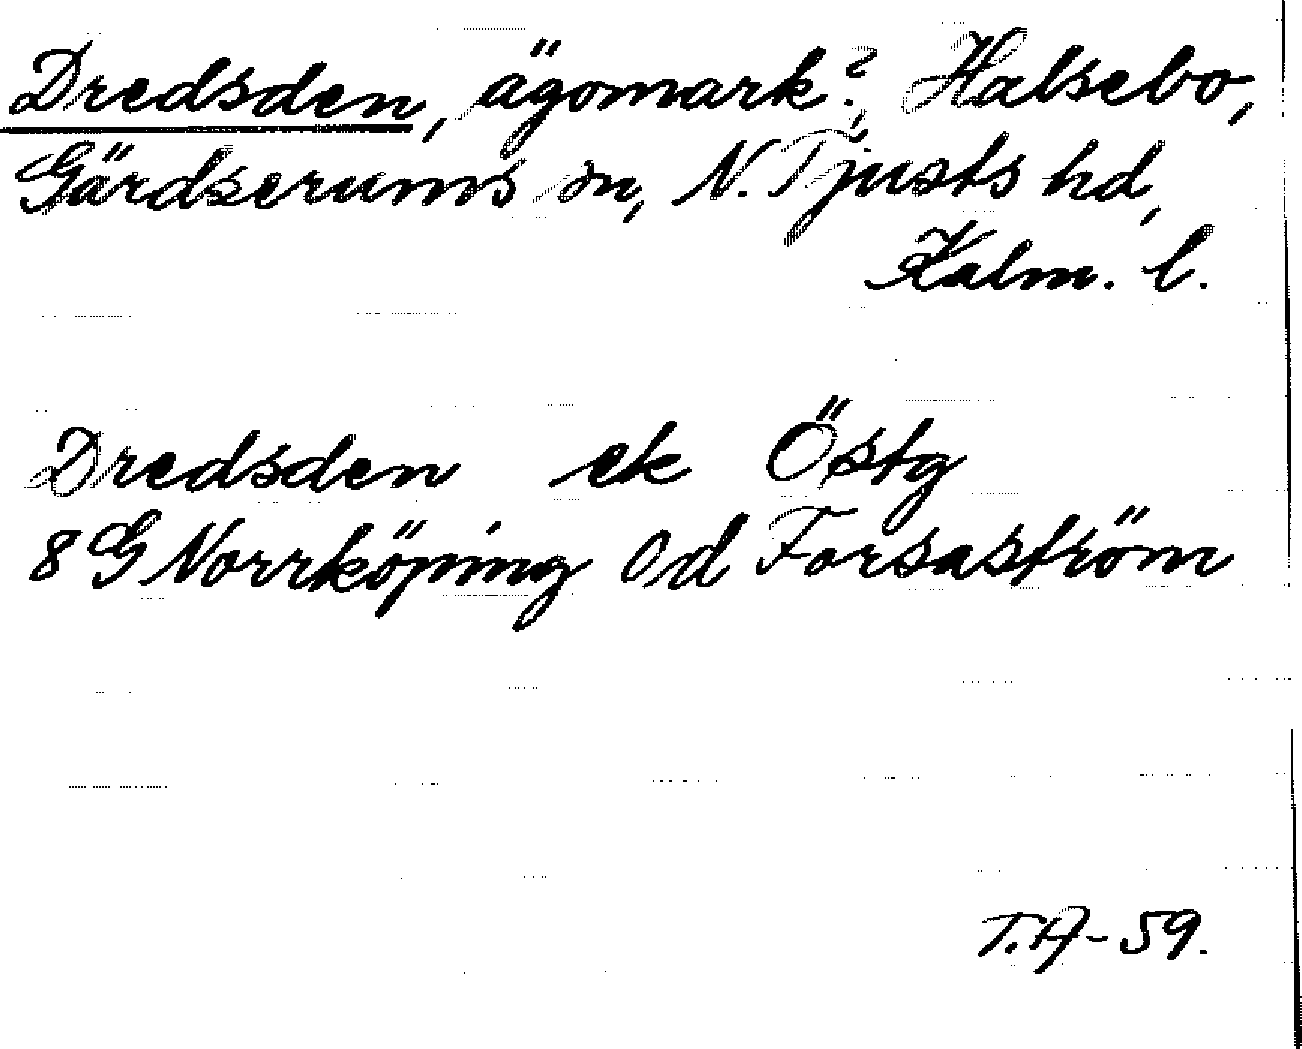 Dredsden, ägomark?, Halsebo,
Gärdserums sn, N. Tjusts hd,
Kalm. l.
Dredsden ek Östg
8G Norrköping 0d Forsaström
T.A-59.